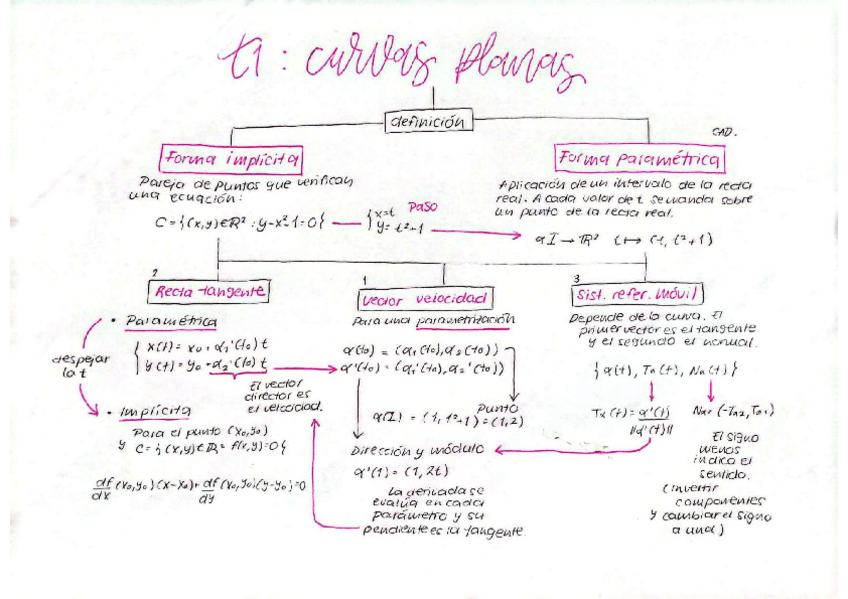 t1: curvas planas
definición
CAD.
Forma implícita
Pareja de puntos que verifican
una ecuación:
C={(x,y)∈ℝ²: y-x²-1=0}
{x=t
y=t²+1
Paso
Forma paramétrica
Aplicación de un intervalo de la recta
real. A cada valor de t se manda sobre
un punto de la recta real.
α I → ℝ² t ↦ (t, t²+1)
2
Recta tangente
• Paramétrica
{ x(t) = x₀ + α₁'(t₀) t
y(t) = y₀ + α₂'(t₀) t
despejar
la t
El vector
director es
el velocidad.
• Implícita
Para el punto (x₀,y₀)
y C={(x,y)∈ℝ² f(x,y)=0{
df/dx (x₀,y₀)(x-x₀)+ df/dy (x₀,y₀)(y-y₀)=0
1
Vector velocidad
Para una parametrización
α(t₀) = (α₁(t₀), α₂(t₀))
α'(t₀) = (α₁'(t₀), α₂'(t₀))
Punto
α(1) = (1, 1²+1) = (1,2)
Dirección y módulo
α'(1) = (1, 2t)
La derivada se
evalúa en cada
parámetro y su
pendiente es la tangente.
3
Sist. refer. móvil
Depende de la curva. El
primer vector es el tangente
y el segundo el normal.
{ α(t), Tα(t), Nα(t) }
Tα(t) = α'(t)
||α'(t)||
Nα = (-Tα2, Tα1)
El signo
menos
indica el
sentido.
(invertir
componentes
y cambiar el signo
a una)